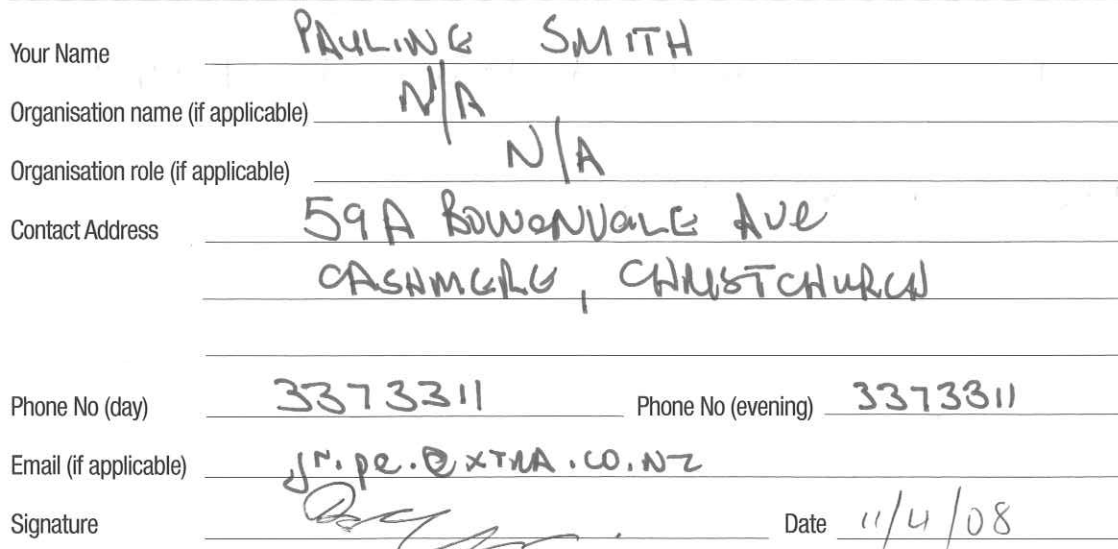 Your Name PAULINE SMITH
Organisation name (if applicable) N/A
Organisation role (if applicable) N/A
Contact Address 59A BOWENVALE AVE
CASHMERE, CHRISTCHURCH
Phone No (day) 3373311 Phone No (evening) 3373311
Email (if applicable) jr.pe.@XTRA.CO.NZ
Signature Date 11/4/08